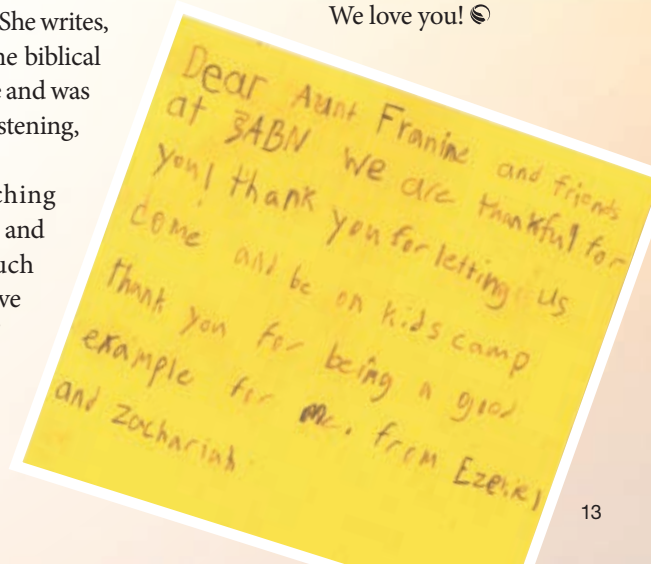 She writes,
ne biblical
e and was
stening,
ching
and
uch
ve
We love you!
Dear Aunt Franine and friends
at 3ABN we are thankful for
you! thank you for letting us
come and be on kids camp
thank you for being a good
example for me. from Ezekiel
and Zachariah
13